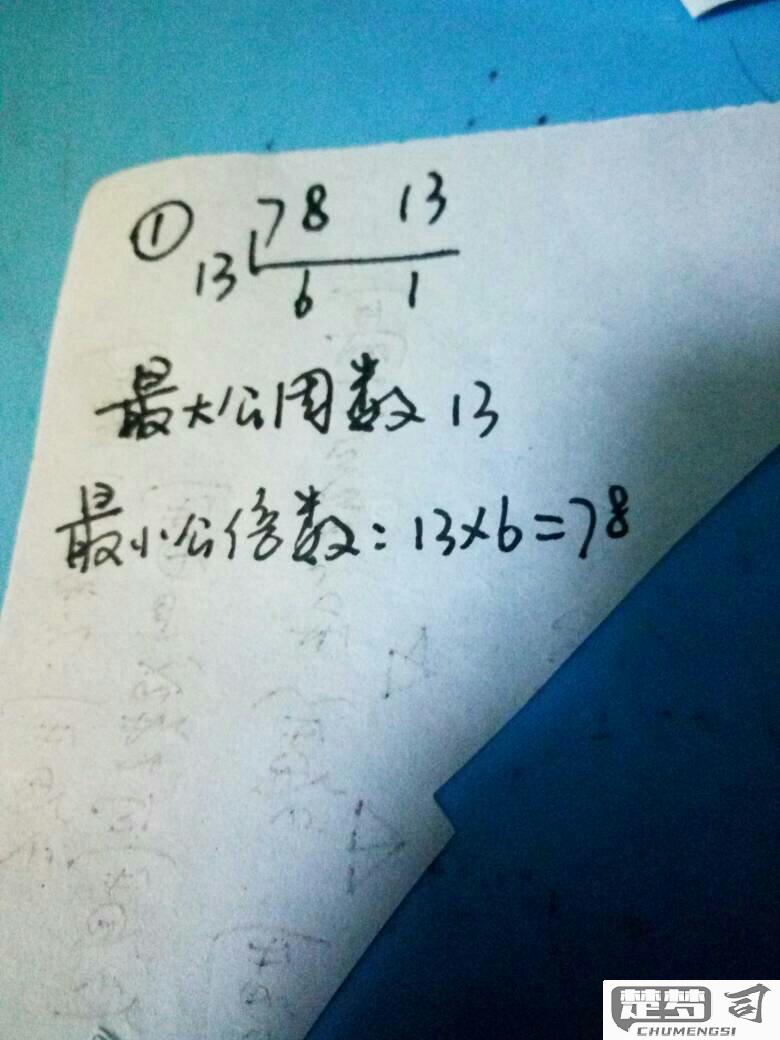 ① 78 13
13 6 1
最大公因数 13
最小公倍数: 13×6=78
楚梦司
CHUMENGSI